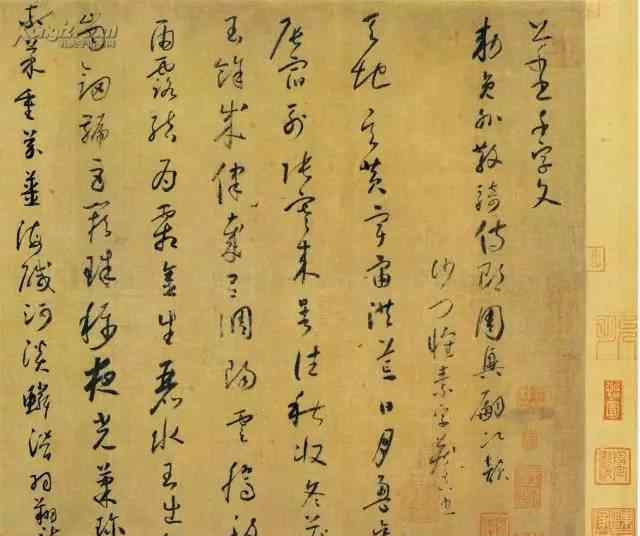 千字文
勅員外散騎侍郎周興嗣次韻
沙門懷素字藏真書
天地玄黃宇宙洪荒日月盈昃
辰宿列張寒來暑往秋收冬藏
閏餘成律歲呂調陽雲騰致
雨露結為霜金生麗水玉生
崗劍號巨闕珠稱夜光菓珍
柰菜重芥薑海鹹河淡鱗潛羽翔龍